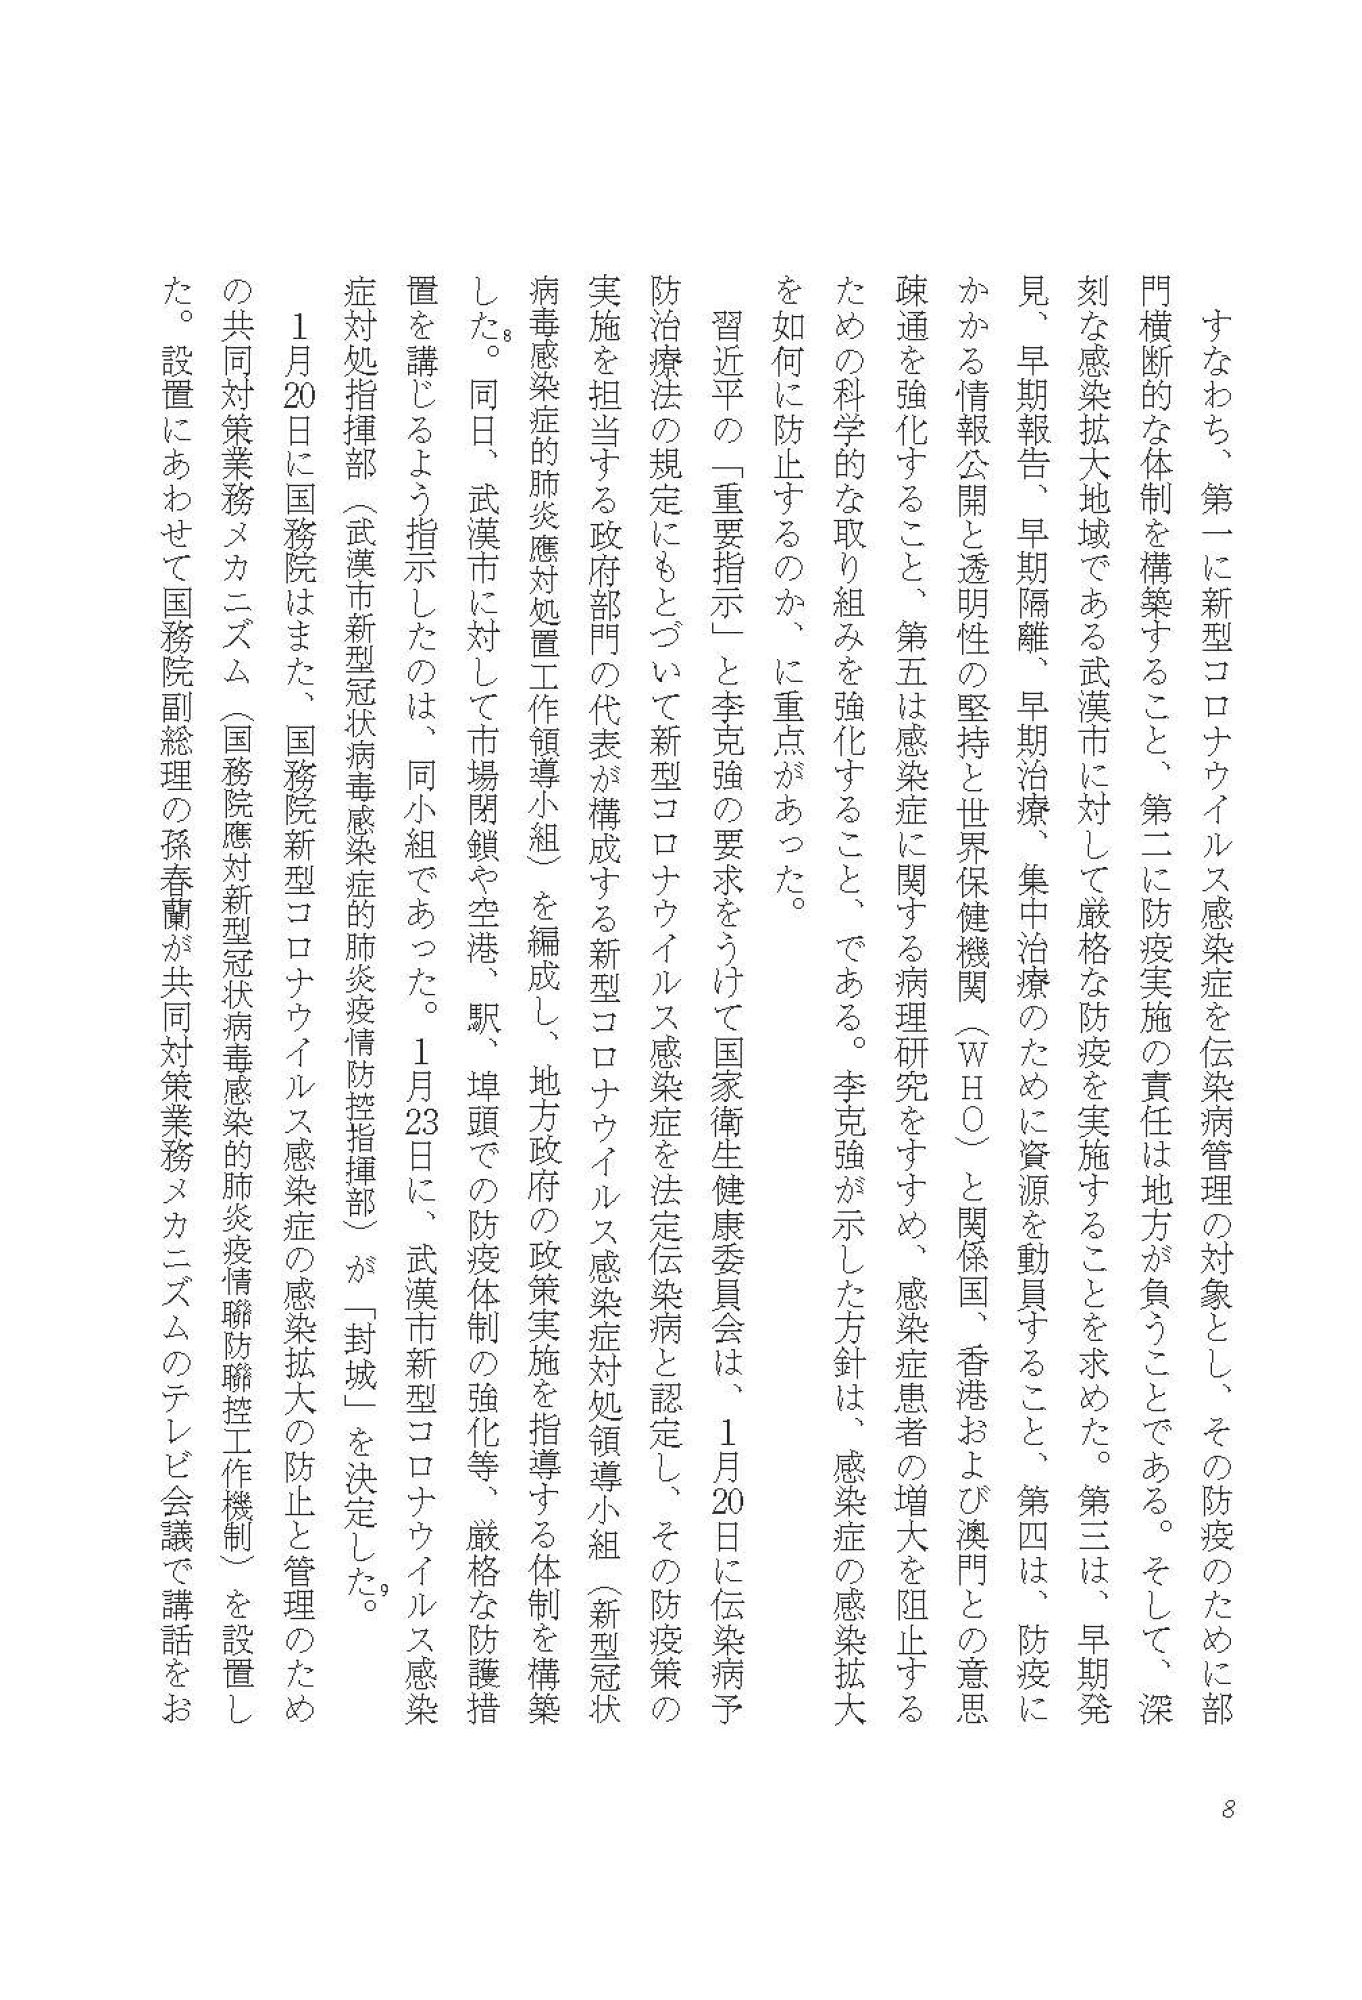 すなわち、第一に新型コロナウイルス感染症を伝染病管理の対象とし、その防疫のために部
門横断的な体制を構築すること、第二に防疫実施の責任は地方が負うことである。そして、深
刻な感染拡大地域である武漢市に対して厳格な防疫を実施することを求めた。第三は、早期発
見、早期報告、早期隔離、早期治療、集中治療のために資源を動員すること、第四は、防疫に
かかる情報公開と透明性の堅持と世界保健機関（ＷＨＯ）と関係国、香港および澳門との意思
疎通を強化すること、第五は感染症に関する病理研究をすすめ、感染症患者の増大を阻止する
ための科学的な取り組みを強化すること、である。李克強が示した方針は、感染症の感染拡大
を如何に防止するのか、に重点があった。
習近平の「重要指示」と李克強の要求をうけて国家衛生健康委員会は、1月20日に伝染病予
防治療法の規定にもとづいて新型コロナウイルス感染症を法定伝染病と認定し、その防疫策の
実施を担当する政府部門の代表が構成する新型コロナウイルス感染症対処領導小組（新型冠状
病毒感染症的肺炎應対処置工作領導小組）を編成し、地方政府の政策実施を指導する体制を構築
した。8同日、武漢市に対して市場閉鎖や空港、駅、埠頭での防疫体制の強化等、厳格な防護措
置を講じるよう指示したのは、同小組であった。1月23日に、武漢市新型コロナウイルス感染
症対処指揮部（武漢市新型冠状病毒感染症的肺炎疫情防控指揮部）が「封城」を決定した。9
1月20日に国務院はまた、国務院新型コロナウイルス感染症の感染拡大の防止と管理のため
の共同対策業務メカニズム（国務院應対新型冠状病毒感染的肺炎疫情聯防聯控工作機制）を設置し
た。設置にあわせて国務院副総理の孫春蘭が共同対策業務メカニズムのテレビ会議で講話をお
8